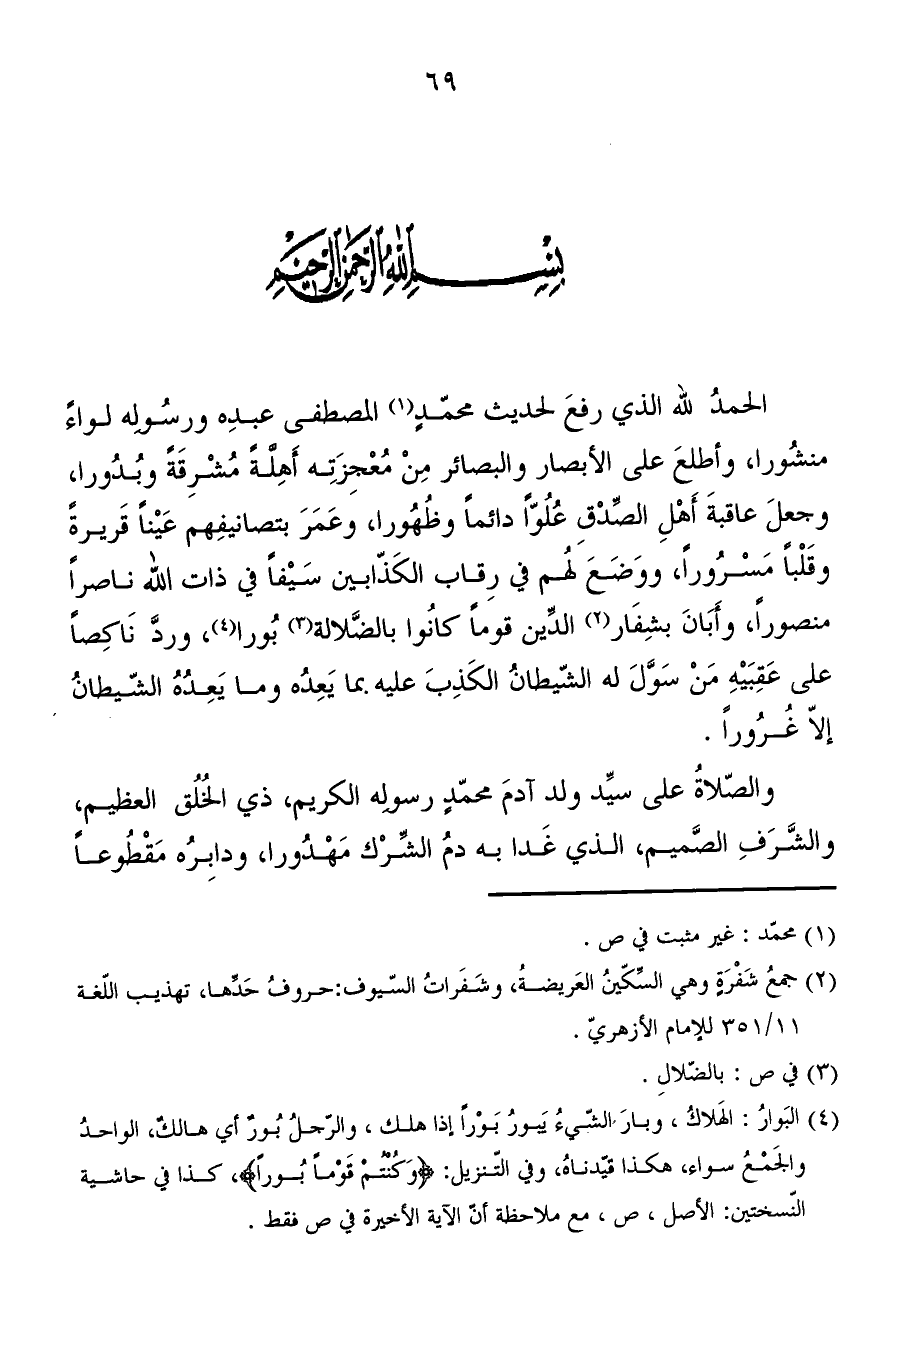 ٦٩
بِسْمِ اللهِ الرَّحْمَنِ الرَّحِيْمِ
الحمدُ لله الذي رفعَ لحديث محمّدٍ(١) المصطفى عبدِه ورسُولِه لواءً
منشُورا، وأطلعَ على الأبصار والبصائر مِنْ مُعْجِزَتِه أَهِلَّةً مُشْرِقَةً وبُدُورا،
وجعلَ عاقبةَ أَهْلِ الصِّدْقِ عُلُوّاً دائماً وظُهُورا، وعَمَرَ بتصانيفِهم عَيْناً قَريرةً
وقَلْباً مَسْرُوراً، ووَضَعَ لهُم في رِقاب الكَذّابين سَيْفاً في ذات الله ناصراً
منصوراً، وأَبَانَ بشِفَار(٢) الدِّين قوماً كانُوا بالضَّلالة(٣) بُورا(٤)، وردَّ نَاكِصاً
على عَقِبَيْهِ مَنْ سَوَّلَ له الشّيطانُ الكَذِبَ عليه بما يَعِدُه وما يَعِدُهُ الشّيطانُ
إلاّ غُرُوراً .
والصّلاةُ على سيِّد ولد آدمَ محمّدٍ رسولِه الكريم، ذي الخُلُق العظيم،
والشَّرَفِ الصَّميم، الذي غَدا به دمُ الشِّرْك مَهْدُورا، ودابِرُه مَقْطُوعاً
(١) محمّد : غير مثبت في ص .
(٢) جمعُ شَفْرَةٍ وهي السِّكّينُ العَريضةُ، وشَفَراتُ السّيوف:حروفُ حَدِّها، تهذيب اللّغة
٣٥١/١١ للإمام الأزهريّ .
(٣) في ص : بالضّلالِ .
(٤) البَوارُ : الهَلاكُ ، وبارَ الشّيءُ يَبورُ بَوْراً إذا هلك ، والرّجلُ بُورٌ أي هالكٌ، الواحدُ
والجَمْعُ سواء، هكذا قيّدناهُ، وفي التّنزيل: ﴿وَكُنْتُمْ قَوْماً بُوراً﴾، كذا في حاشية
النّسختين: الأصل ، ص ، مع ملاحظة أنّ الآية الأخيرة في ص فقط .